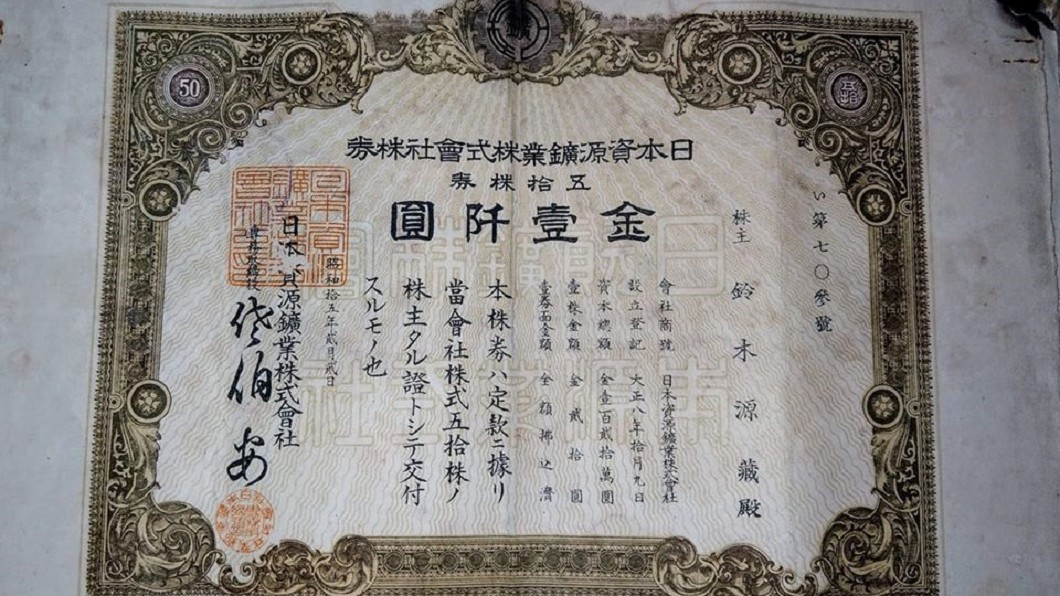 鑛
50
五拾
日本資源鑛業株式會社株券
五拾株券
金壹阡圓
い第七〇參號
株主 鈴木源藏殿
會社商號 日本資源鑛業株式會社
設立登記 大正八年拾月九日
資本總額 金壹百貳拾萬圓
壹株金額 金貳拾圓
壹券面金額 全額拂込濟
本株券ハ定款ニ據リ
當會社株式五拾株ノ
株主タル證トシテ交付
スルモノ也
昭和拾五年貳月貳日
日本資源鑛業株式會社
專務取締役